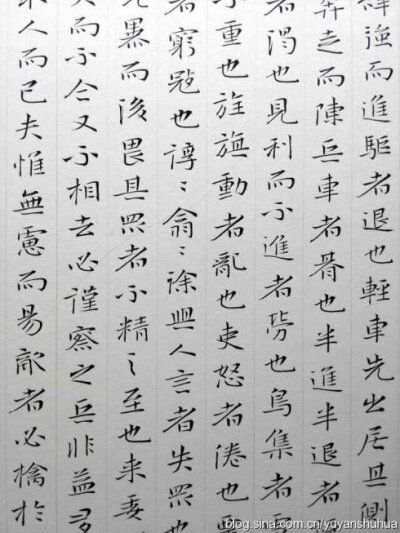 強而進驅者退也輕車先出居其側
奔走而陳兵車者朞也半進半退者
者渴也見利而不進者勞也鳥集者
不重也旌旗動者亂也吏怒者倦也
者窮寇也諄〻翕〻徐與人言者失眾也
暴而後畏其眾者不精之至也来委
而不合又不相去必謹察之兵非益多
人而已夫惟無慮而易敵者必擒於
blog.sina.com.cn/yuyanshuhua